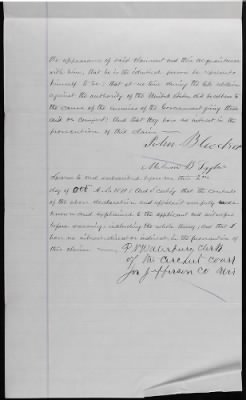 the appearance of said claimant and their acquaintance
with him, that he is the identical person he represents
himself to be: that at no time during the late rebellion
against the authority of the United States did he adhere to
the cause of the enemies of the Government giving them
aid or comfort; And that they have no interest in the
prosecution of this claim
John B
Melvin B
Sworn to and subscribed before me this 2nd
day of Oct A.D. 1871; And I certify that the contents
of the above declaration and affidavit were fully made
known and explained to the applicant and witnesses
before swearing, including the whole thing; And that I
have no interest direct or indirect in the prosecution of
this claim
Clerk
of the Circuit Court
for Jefferson Co Wis